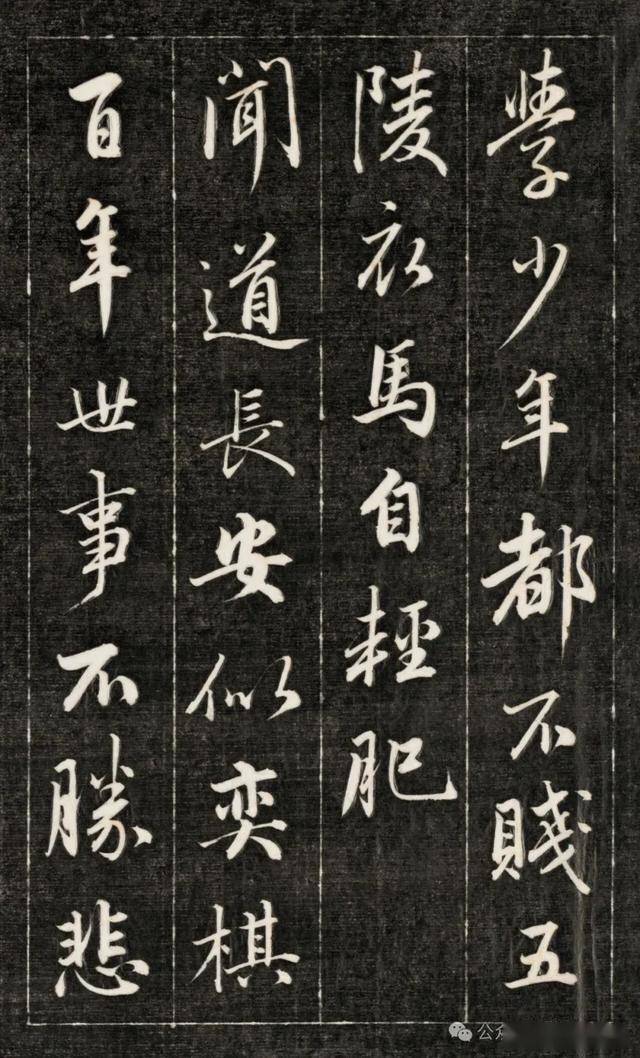 學少年都不賤五
陵衣馬自輕肥
聞道長安似奕棋
百年世事不勝悲
公众